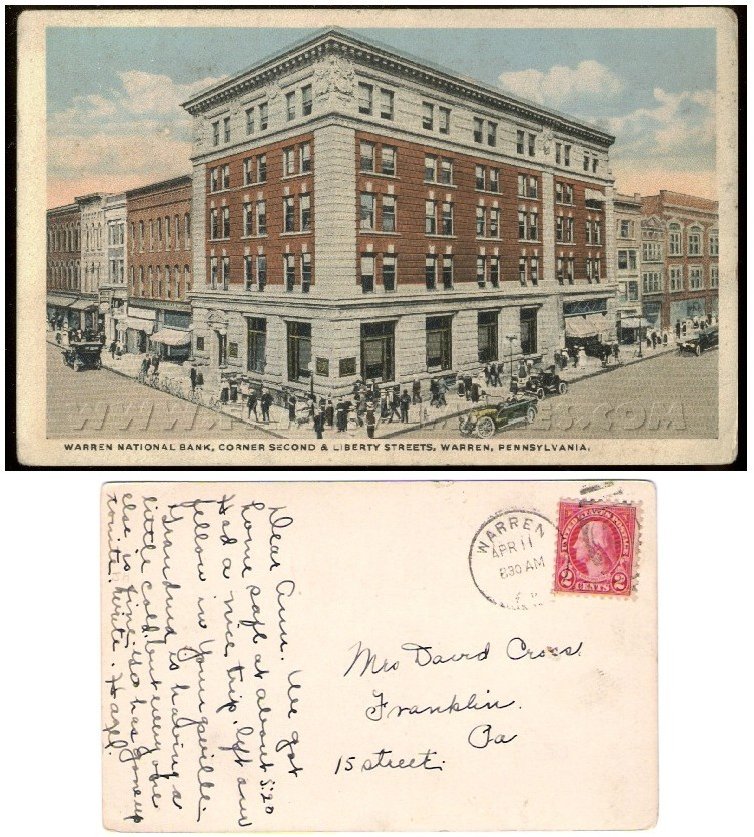 WWW.FAMILYOLDPHOTOS.COM
WARREN NATIONAL BANK, CORNER SECOND & LIBERTY STREETS, WARREN, PENNSYLVANIA.
Dear Ann. We got
home safe at about 5:20
Had a nice trip. left our
fellow in Youngsville.
Grandma is having a
little cold but every one
else is fine. has gone up
write. Hazel.
WARREN
APR 11
8 30 AM
UNITED STATES POSTAGE
2 CENTS 2
Mrs David Cross
Franklin.
Pa
15 street.